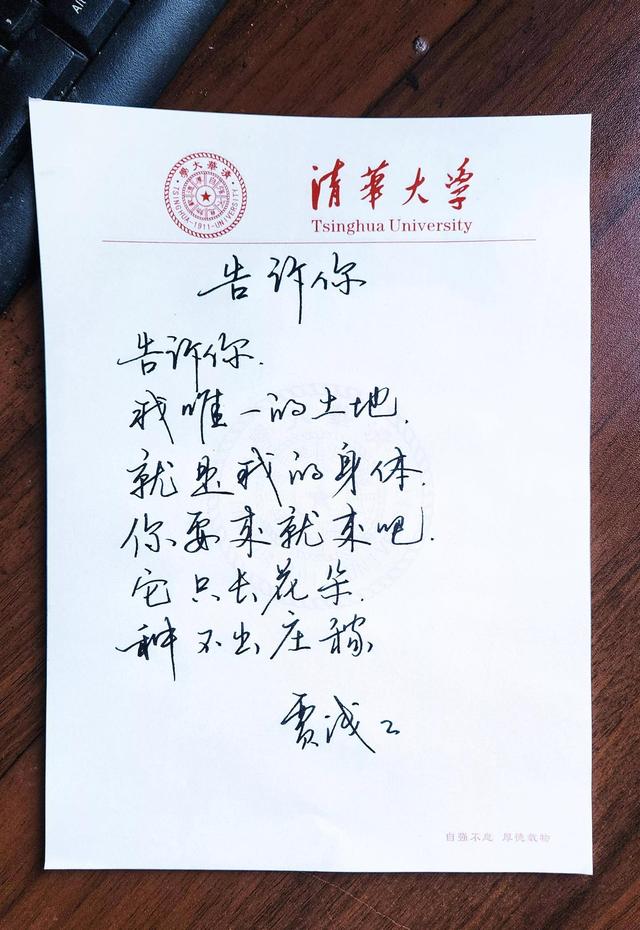 清華大學
TSINGHUA-1911-UNIVERSITY
清華大学
Tsinghua University
告许你
告许你.
我唯一的土地.
就是我的身体.
你要来就来吧.
它只长花朵.
种不出庄稼
贾浅二
自强不息 厚德载物